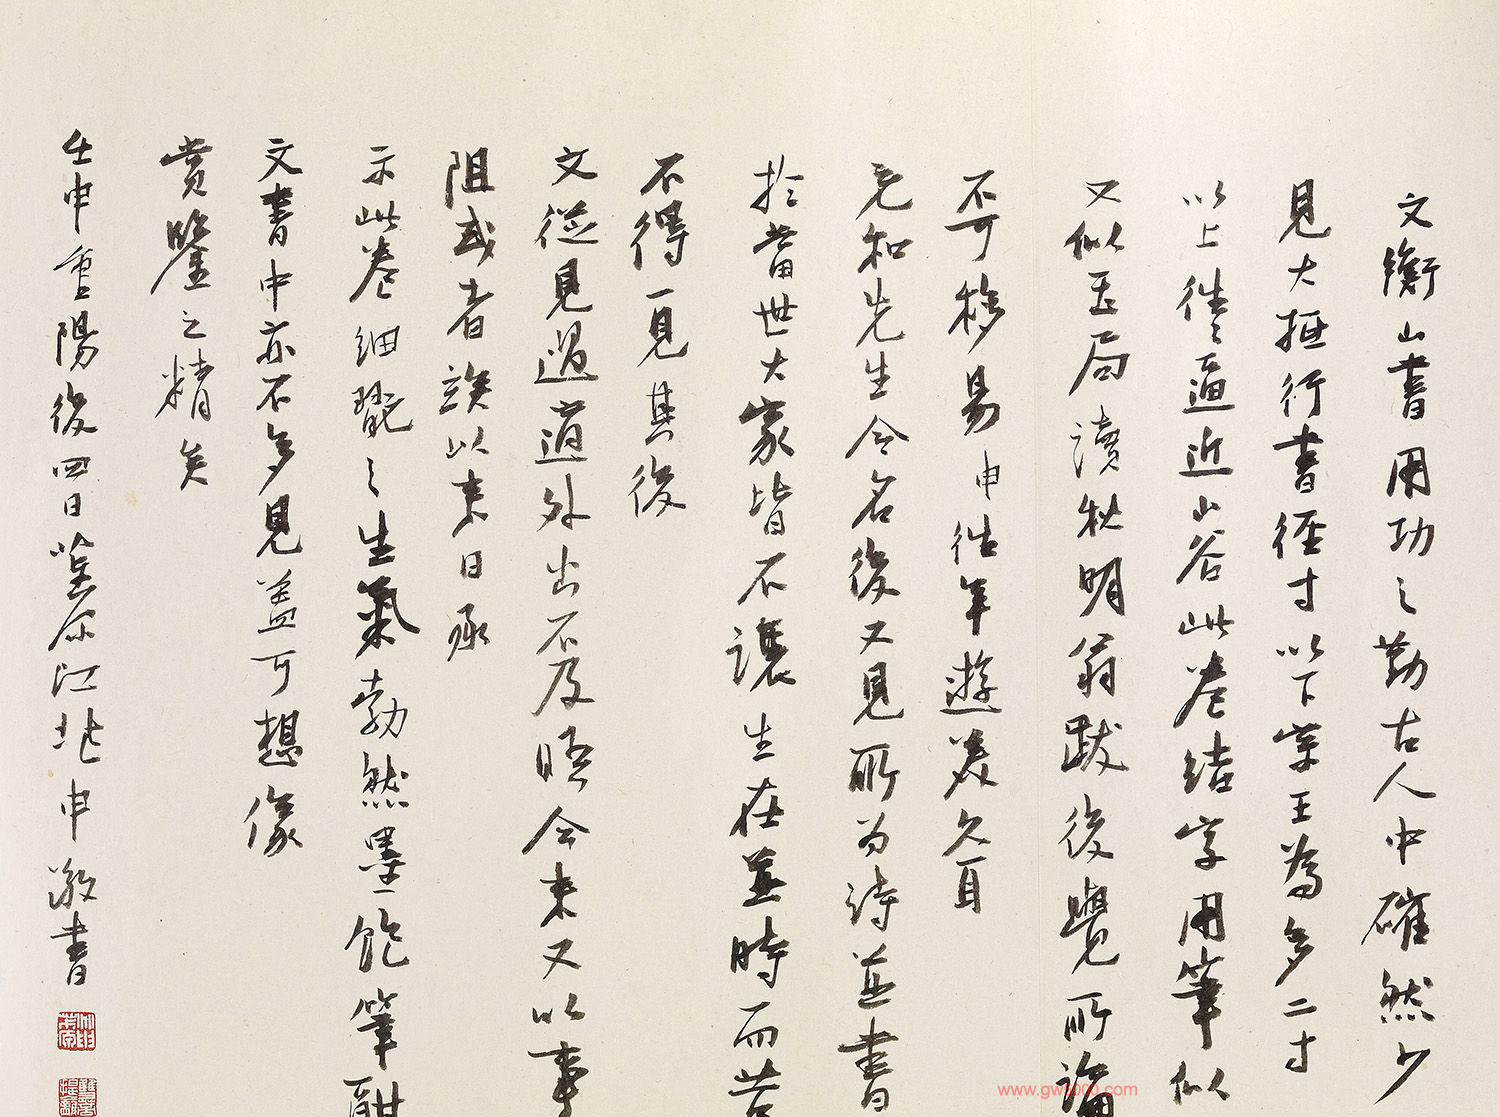 文衡山書用功之勤古人中確然少
見大抵行書徑寸以下學王為多二寸
以上往往逼近山谷此卷結字用筆似
又似玉局讀秋明翁跋後覺所論
不可移易申往年遊美久耳
元和先生令名後又見所為詩並書
於當世大家皆不讓生在並時而苦
不得一見其後
文從見過適外出不及晤今來又以事
阻或者俟以來日承
示此卷細翫之生氣勃然墨飽筆酣
文書中亦不多見蓋可想像
賞鑒之精矣
壬申重陽後四日 江兆申敬書
www.gw5000.com